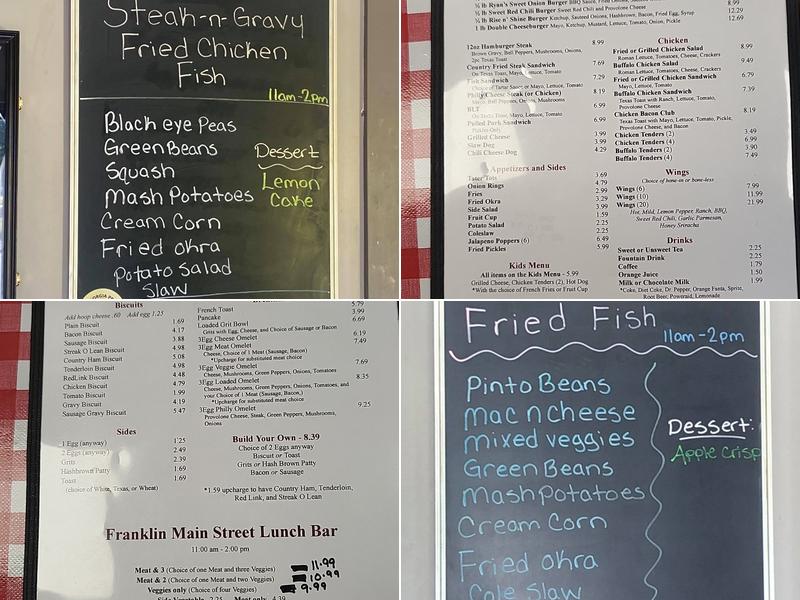 Steak-n-Gravy
Fried Chicken
Fish
11am-2pm
Black eye Peas
Green Beans
Squash
Mash Potatoes
Cream Corn
Fried okra
Potato Salad
Slaw
Dessert
Lemon
Cake
½ lb Ryan's Sweet Onion Burger BBQ Sauce, Fried
½ lb Sweet Red Chili Burger Sweet Red Chili and Provolone Cheese 8.99
½ lb Rise n' Shine Burger Ketchup, Sauteed Onions, Hashbrown, Bacon, Fried Egg, Syrup 12.29
1 lb Double Cheeseburger Mayo, Ketchup, Mustard, Lettuce, Tomato, Onion, Pickle 12.69
12oz Hamburger Steak 8.99
Brown Gravy, Bell Peppers, Mushrooms, Onions,
2pc Texas Toast
Country Fried Steak Sandwich 7.69
On Texas Toast, Mayo, Lettuce, Tomato
Fish Sandwich 7.29
Choice of Tartar Sauce or Mayo, Lettuce, Tomato
Philly Cheese Steak (or Chicken) 8.19
Mayo, Bell Peppers, Onions, Mushrooms
BLT 6.99
On Texas Toast, Mayo, Lettuce, Tomato
Pulled Pork Sandwich 6.99
Pickles Only
Grilled Cheese 3.99
Slaw Dog 3.99
Chili Cheese Dog 4.29
Appetizers and Sides
Tater Tots 3.69
Onion Rings 4.79
Fries 2.99
Fried Okra 3.29
Side Salad 3.99
Fruit Cup 1.59
Potato Salad 2.25
Coleslaw 2.25
Jalapeno Poppers (6) 6.49
Fried Pickles 5.99
Kids Menu
All items on the Kids Menu - 5.99
Grilled Cheese, Chicken Tenders (2), Hot Dog
*With the choice of French Fries or Fruit Cup
Chicken
Fried or Grilled Chicken Salad 8.99
Roman Lettuce, Tomatoes, Cheese, Crackers
Buffalo Chicken Salad 9.49
Roman Lettuce, Tomatoes, Cheese, Crackers
Fried or Grilled Chicken Sandwich 6.79
Mayo, Lettuce, Tomato
Buffalo Chicken Sandwich 7.39
Texas Toast with Ranch, Lettuce, Tomato,
Provolone Cheese
Chicken Bacon Club 8.19
Texas Toast with Mayo, Lettuce, Tomato, Pickle,
Provolone Cheese, and Bacon
Chicken Tenders (2) 3.49
Chicken Tenders (4) 6.99
Buffalo Tenders (2) 3.90
Buffalo Tenders (4) 7.49
Wings
Choice of bone-in or bone-less
Wings (6) 7.99
Wings (10) 11.99
Wings (20) 21.99
Hot, Mild, Lemon Pepper, Ranch, BBQ,
Sweet Red Chili, Garlic Parmesan,
Honey Sriracha
Drinks
Sweet or Unsweet Tea 2.25
Fountain Drink 2.25
Coffee 1.79
Orange Juice 1.50
Milk or Chocolate Milk 1.99
*Coke, Diet Coke, Dr. Pepper, Orange Fanta, Sprite,
Root Beer, Poweraid, Lemonade
Biscuits
Add hoop cheese .60 Add egg 1.25
Plain Biscuit 1.69
Bacon Biscuit 4.17
Sausage Biscuit 3.88
Streak O Lean Biscuit 4.98
Country Ham Biscuit 5.08
Tenderloin Biscuit 4.98
RedLink Biscuit 4.48
Chicken Biscuit 4.79
Tomato Biscuit 1.99
Gravy Biscuit 4.19
Sausage Gravy Biscuit 5.47
Sides
1 Egg (anyway) 1.25
2 Eggs (anyway) 2.49
Grits 2.39
Hashbrown Patty 1.69
Toast 1.69
(choice of White, Texas, or Wheat)
5.79
French Toast 3.99
Pancake 6.69
Loaded Grit Bowl
Grits with Egg, Cheese, and Choice of Sausage or Bacon
3Egg Cheese Omelet 6.19
3Egg Meat Omelet 7.49
Cheese, Choice of 1 Meat (Sausage, Bacon)
*Upcharge for substituted meat choice
3Egg Veggie Omelet 7.69
Cheese, Mushrooms, Green Peppers, Onions, Tomatoes
3Egg Loaded Omelet 8.35
Cheese, Mushrooms, Green Peppers, Onions, Tomatoes, and
your Choice of 1 Meat (Sausage, Bacon,)
*Upcharge for substituted meat choice
3Egg Philly Omelet 9.25
Provolone Cheese, Steak, Green Peppers, Mushrooms,
Onions
Build Your Own - 8.39
Choice of 2 Eggs anyway
Biscuit or Toast
Grits or Hash Brown Patty
Bacon or Sausage
*1.59 upcharge to have Country Ham, Tenderloin,
Red Link, and Streak O Lean
Franklin Main Street Lunch Bar
11:00 am - 2:00 pm
Meat & 3 (Choice of one Meat and three Veggies) 11.99
Meat & 2 (Choice of one Meat and two Veggies) 10.99
Veggies only (Choice of four Veggies) 9.99
Side Vegetable 2.25 Meat only 4.39
Fried Fish
11am-2pm
Pinto Beans
mac n cheese
mixed veggies
Green Beans
Mash potatoes
Cream Corn
Fried okra
Cole Slaw
Dessert:
Apple Crisp